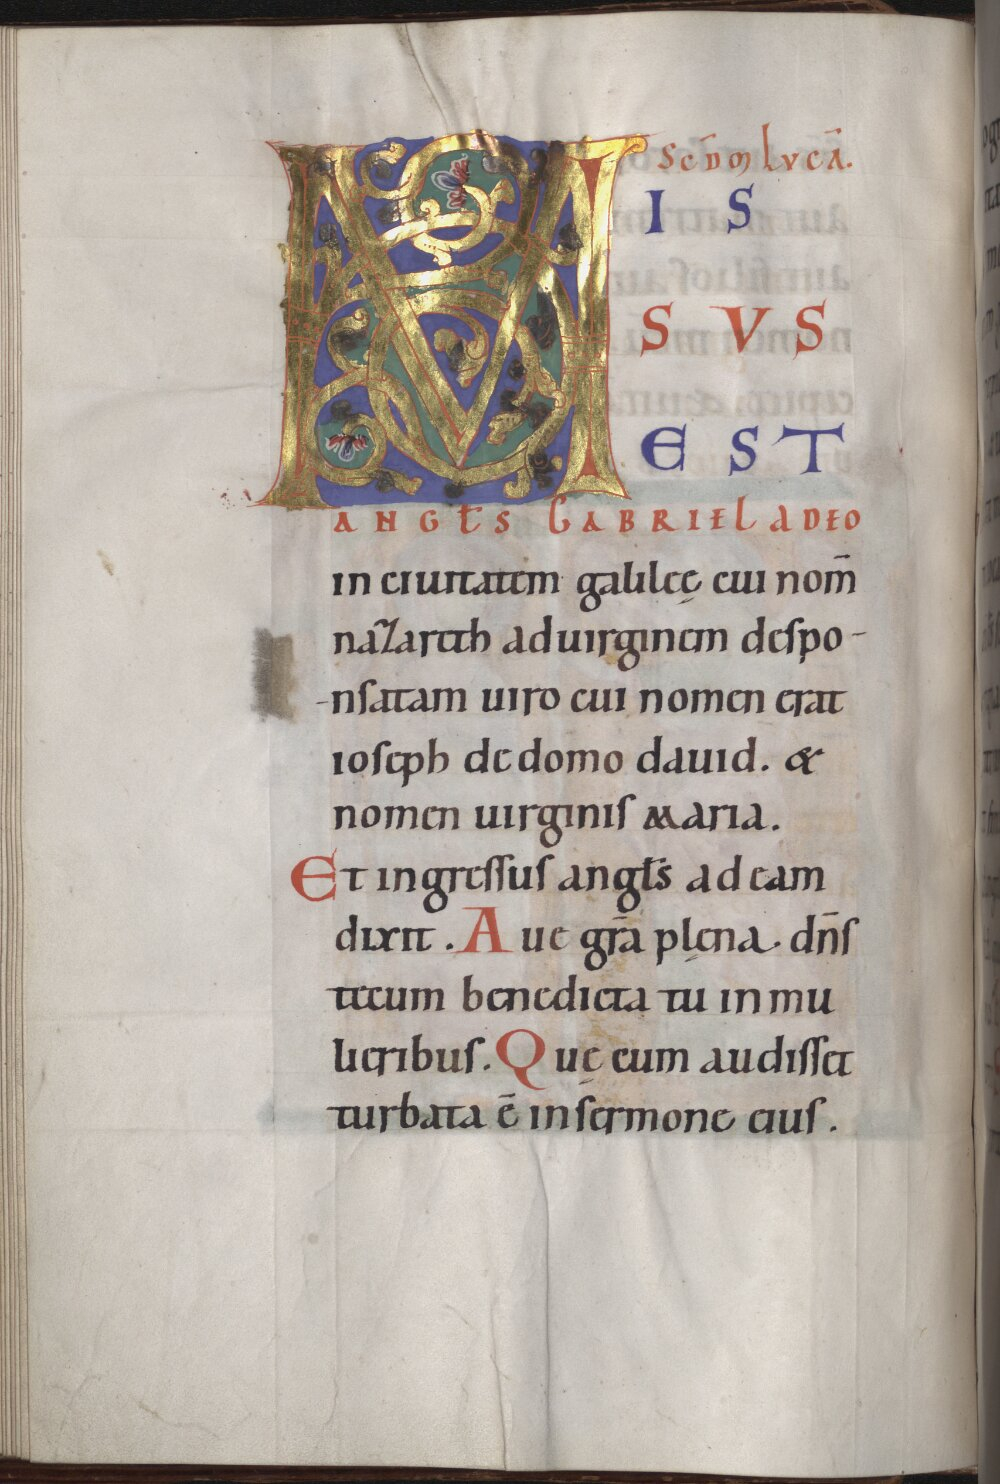 Scd̄m lvcā.
M IS
SVS
EST
ANGLS GABRIEL ADEO
in ciuitatem galileę cui nom̄
nazareth ad uirginem despo-
-nsatam uiro cui nomen erat
ioseph de domo dauid. &
nomen uirginis maria.
Et ingressus angls ad eam
dixit. Aue gr̄a plena. dn̄s
tecum benedicta tu in mu
lieribus. Quę cum audisset
turbata ē in sermone eius.